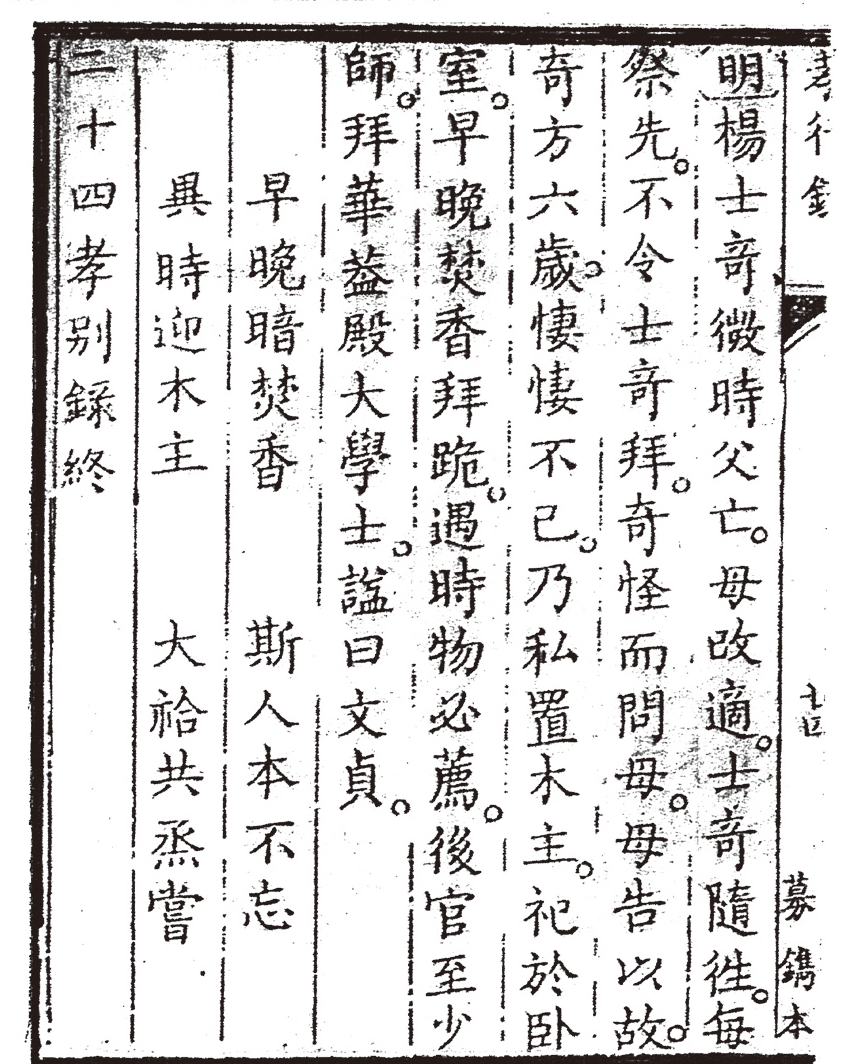 孝行錄 十四 募鐫本
明楊士竒微時父亡。母改適。士竒隨徃。每
祭先。不令士竒拜。竒怪而問母。母告以故。
竒方六歲。悽悽不已。乃私置木主。祀於卧
室。早晚焚香拜跪。遇時物必薦。後官至少
師。拜華蓋殿大學士。諡曰文貞。
早晚暗焚香 斯人本不忘
異時迎木主 大祫共烝嘗
二十四孝別錄終